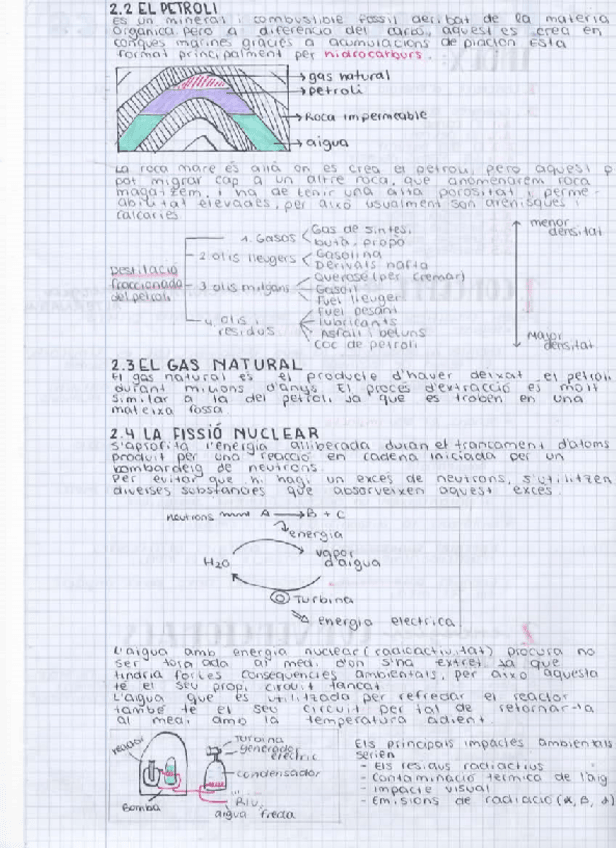 2.2 EL PETROLI
És un mineral i combustible fòssil deribat de la matèria
orgànica, però a diferència del carbó, aquest es crea en
conques marines gràcies a acumulacions de plàcton Està
format principalment per hidrocarburs.
gas natural
petroli
Roca impermeable
aigua
La roca mare és allà on es crea el petroli, però aquest p
pot migrar cap a un altre roca, que anomenarem roca
magatzem, i ha de tenir una alta porositat i perme-
abilitat elevades, per això usualment són arenisques i
calcàries
Destilació
fraccionada
del petroli
1. Gasos
Gas de síntesi
butà, propà
2 olis lleugers
Gasolina
Derivats nafta
3 olis mitjans
Querosè (per cremar)
Gasoil
Fuel lleuger
4 olis i
residus
Fuel pesant
lubricants
Asfalt i betuns
Coc de petroli
menor
densitat
Major
densitat
2.3 EL GAS NATURAL
El gas natural és el producte d'haver deixat el petroli
durant milions d'anys El procés d'extracció és molt
similar a la del petroli, ja que es troben en una
mateixa fossa.
2.4 LA FISSIÓ NUCLEAR
S'aprofita l'energia alliberada duran el trancament d'àtoms
produït per una reacció en cadena iniciada per un
bombardeig de neutrons.
Per evitar que hi hagi un excés de neutrons, s'utilitzen
diverses substàncies que absorveixen aquest excés.
neutrons A → B + C
energia
H2O
vapor
d'aigua
Turbina
energia elèctrica.
L'aigua amb energia nuclear (radioactivitat) procura no
ser ada al medi d'on s'ha extret ja que
tindria fortes conseqüències ambientals, per això aquesta
té el seu propi circuit tancat.
L'aigua que és utilitzada per refredar el reactor
també té el seu circuit per tal de retornar-la
al medi amb la temperatura adient.
reactor
Turbina
generador
elèctric
condensador
Bomba
Riu
aigua freda
Els principals impactes ambientals
serien
- Els residus radiactius
- Contaminació tèrmica de l'aig
- impacte visual
- Emisions de radiació (α, β, γ)